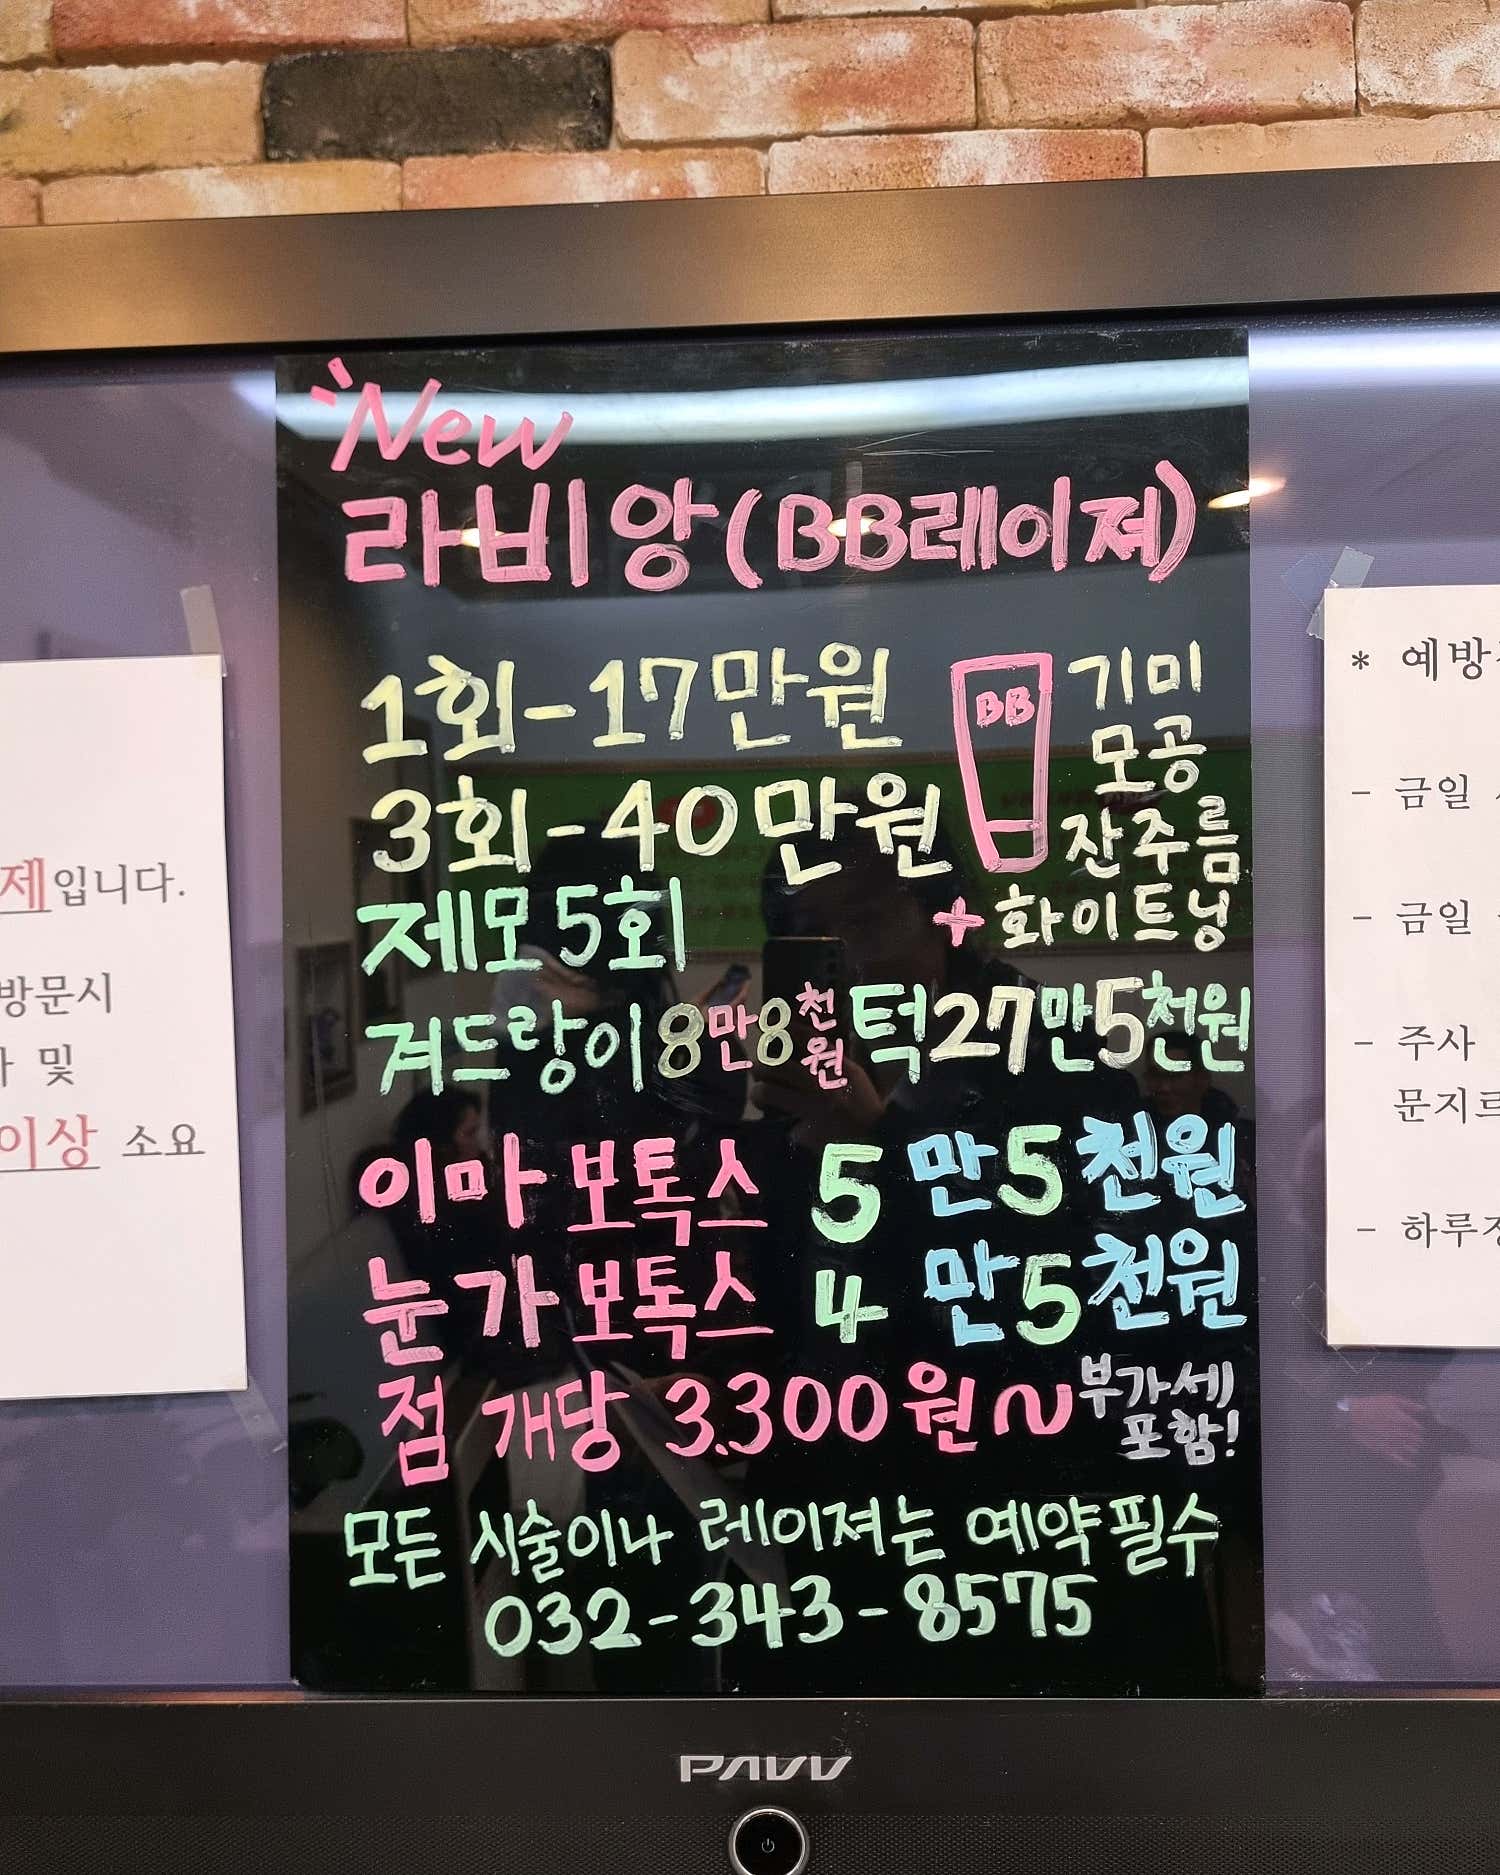 New
라비앙(BB레이져)
1회-17만원
3회-40만원
BB
기미
모공
잔주름
+화이트닝
제모5회
겨드랑이 8만8천원 턱27만5천원
이마 보톡스 5만5천원
눈가 보톡스 4만5천원
점 개당 3.300원~ 부가세 포함!
모든 시술이나 레이져는 예약필수
032-343-8575
제입니다.
방문시
및
이상 소요
* 예방
- 금일
- 금일
- 주사
문지르
- 하루
PAVV